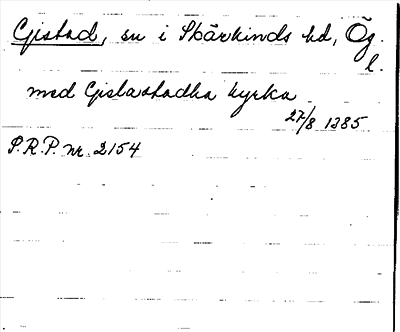 Gistad, sn i Skärkinds hd, Ög.
l.
med Gislastadha kyrka
27/8 1385
S.R.P. nr 2154